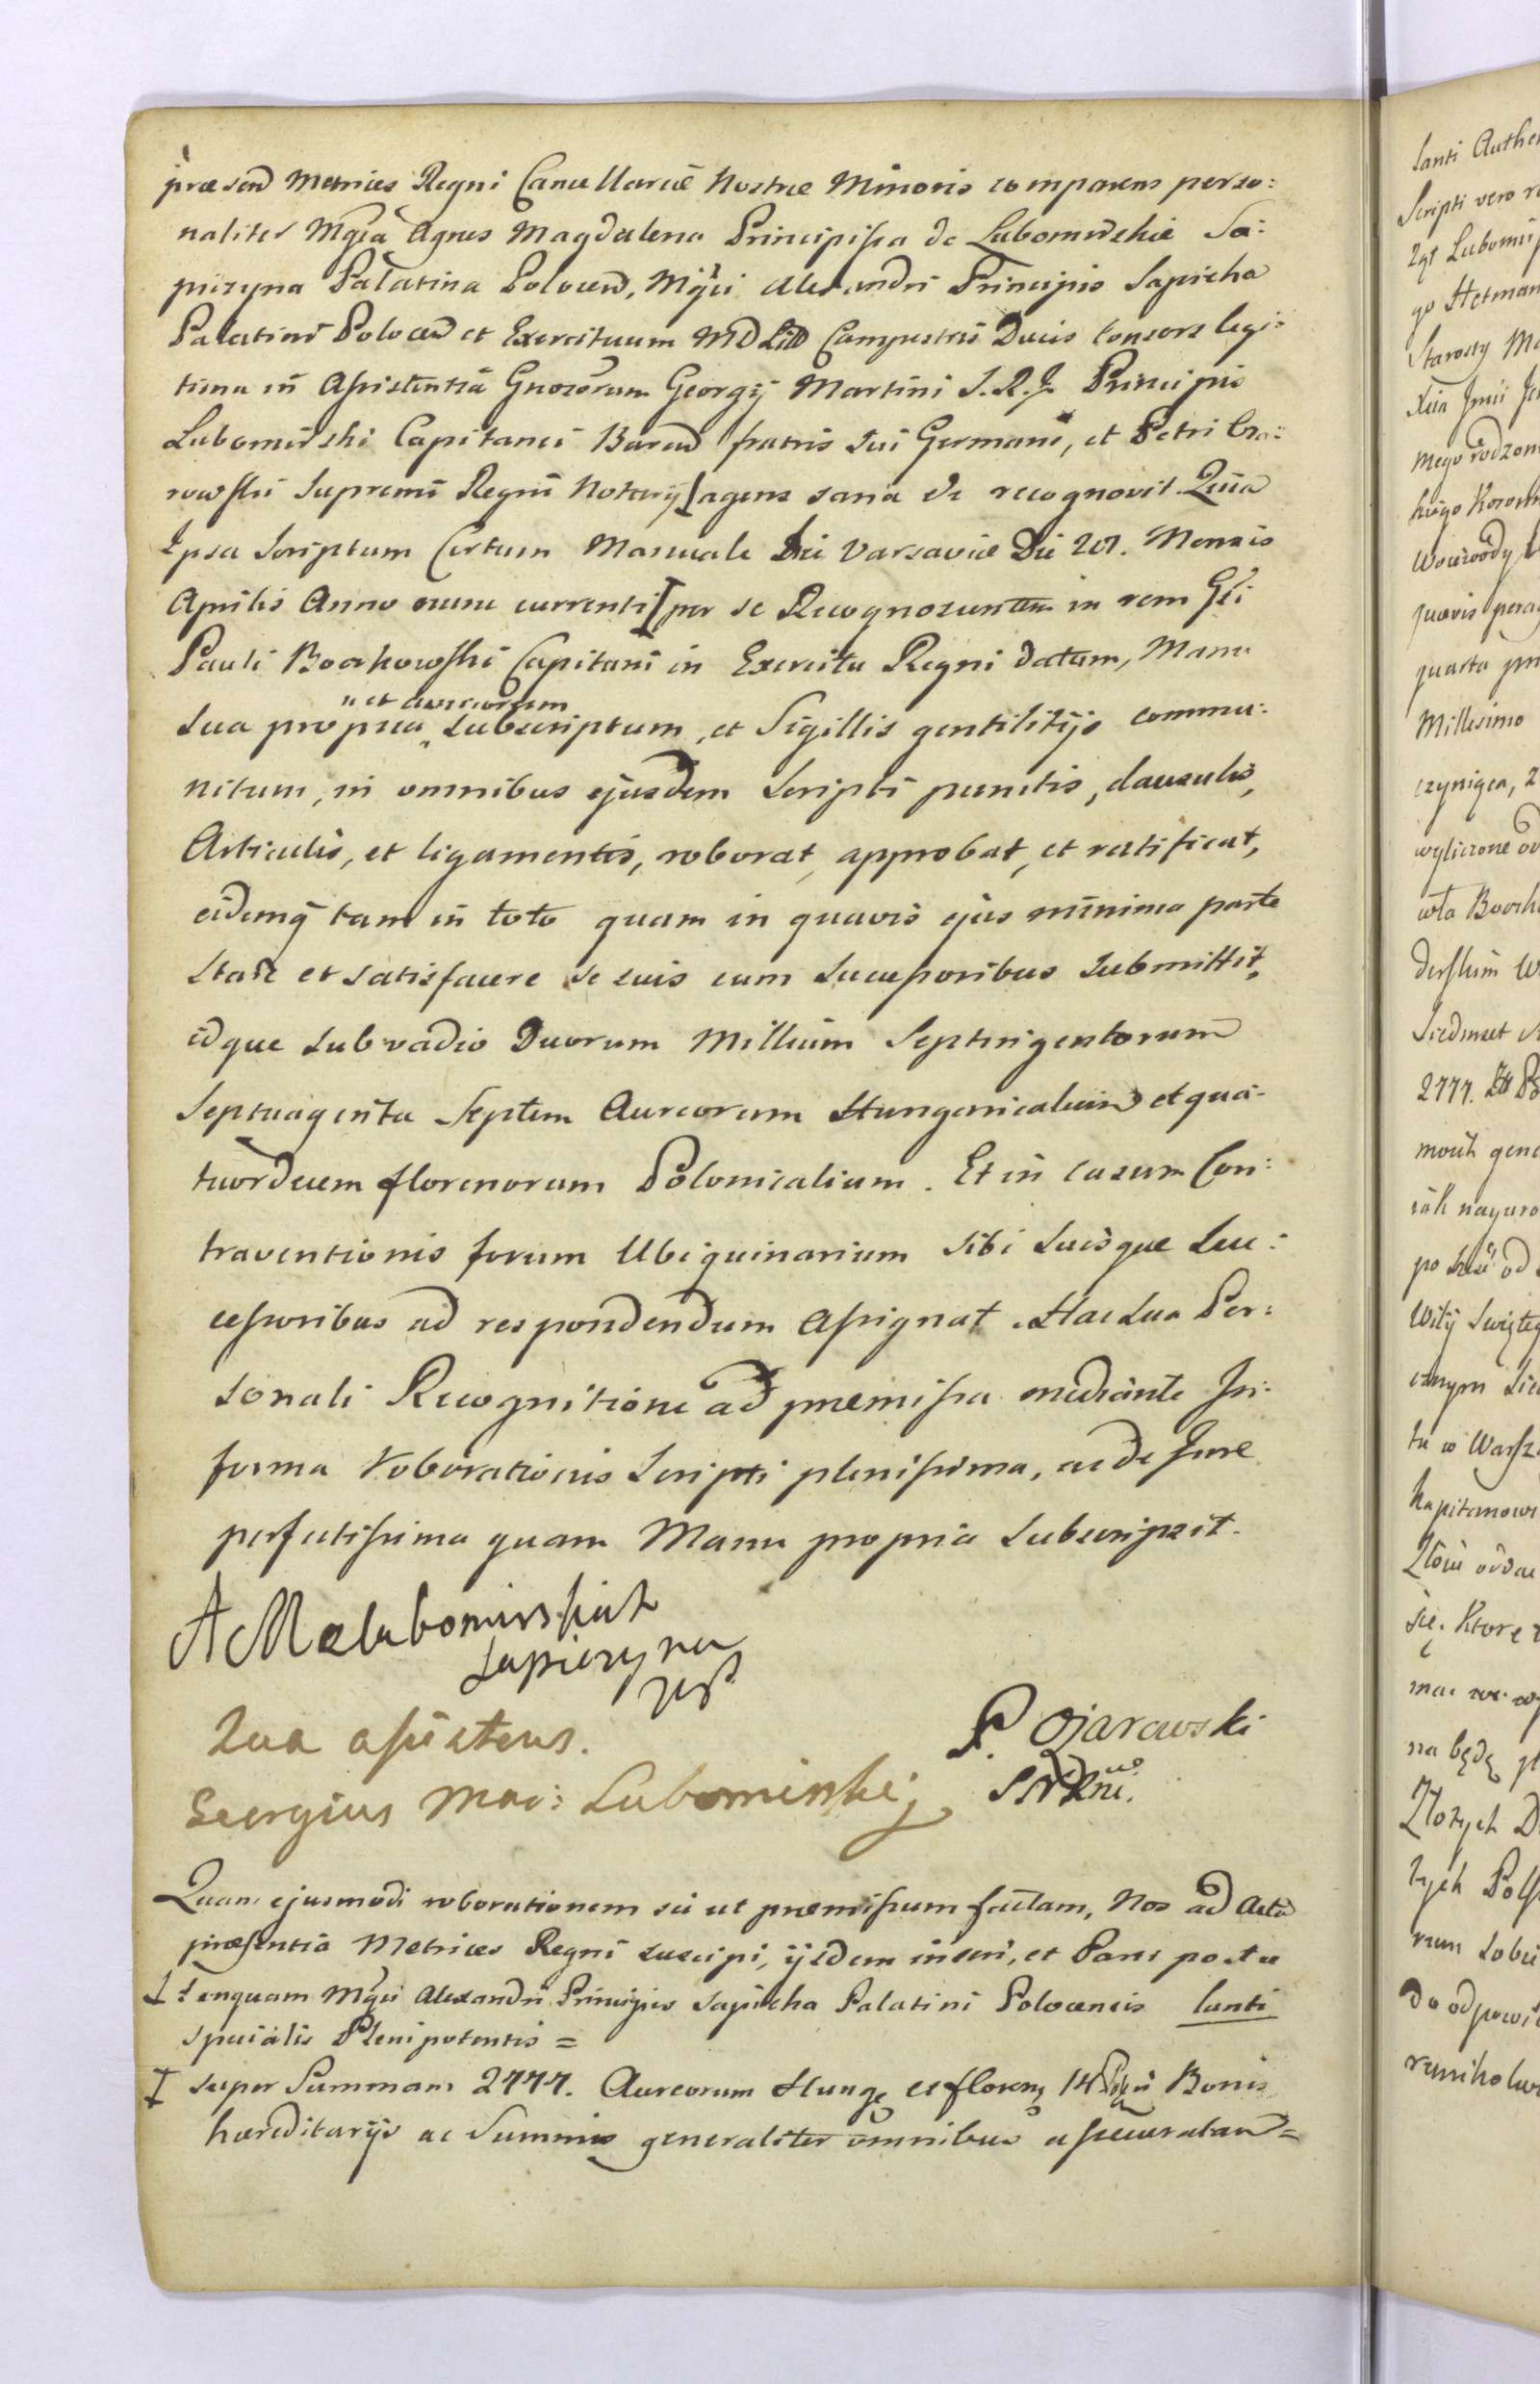 præsen Metrices Regni Cancellariæ Nostræ Minoris comparens perso:
naliter Mgca Agnes Magdalena Principissa de Lubomirskie Sa:
piezyna Palatina Polocen, Mgci Alexandri Principis Sapieha
Palatini Polocen et Exercituum MD Litt Campestris Ducis Consors legi:
tima in Assistentia Gnosorum Georgÿ Martini S.R.J. Principis
Lubomirski Capitanei Baren fratris sui Germani, et Petri
rowski Supremi Regni Notarÿ agens sana &c recognovit. Quia
Ipsa Scriptum Certum Manuale Varsaviæ Die Mensis
Aprilis Anno nunc currenti per se Recognoscentem in rem Gsi
Pauli Boorkowski Capitani in Exercitu Regni datum, Manu
" et
Sua propria " Subscriptum, et Sigillis gentilitÿs commu:
nitum, in omnibus ejusdem Scripti punctis, clausulis,
Articulis, et ligamentis, roborat, approbat, et ratificat,
eidemq tam in toto quam in quavis ejus minima parte
Stare et satisfacere se suis cum Successoribus Submittit,
idque Sub vadio Duorum Millium Septingentorum
Septuaginta Septem Aureorum Hungaricalium et qua-
tuordecem florenorum Polonicalium. Et in casum Con:
traventionis forum Ubiquinarium sibi Suisque Suc:
cessoribus ad respondendum Assignat. Hac Sua Per:
sonali Recognitione ad præmissa mediante In:
forma Roborationis Scripti plenissima, ac de Jure
perfectissima quam Manu propria Subscripsit.
A M Lubomirskich
Sapiezyna
Qua assistens.
P. Ożarowski
Georgius Mar: Lubomirskij
Quam ejusmodi roborationem sic ut præmissum factam, Nos ad Acta
præsentia Metrices Regni suscipi, ÿsdem inseri, et Parti postu
tanquam Mgci Alexandri Principis Sapieha Palatini Polocensis lanti
specialis Plenipotentis =
super Summam 2777. Aureorum Hung et floren 14 Bonis
hæreditarÿs ac Summis generaliter omnibus assecuratam =
lanti Authen
Scripti vero
Lubomir
go Hetman
Starosty
mego rodzon
Woiewody
quavis
quarta
Millesimo
czyniąca,
wyliczone od
Siedmset
2777.
po
Kapitanowi
się. Ktore
na będę
Złotych
tych Pols
do odpowie